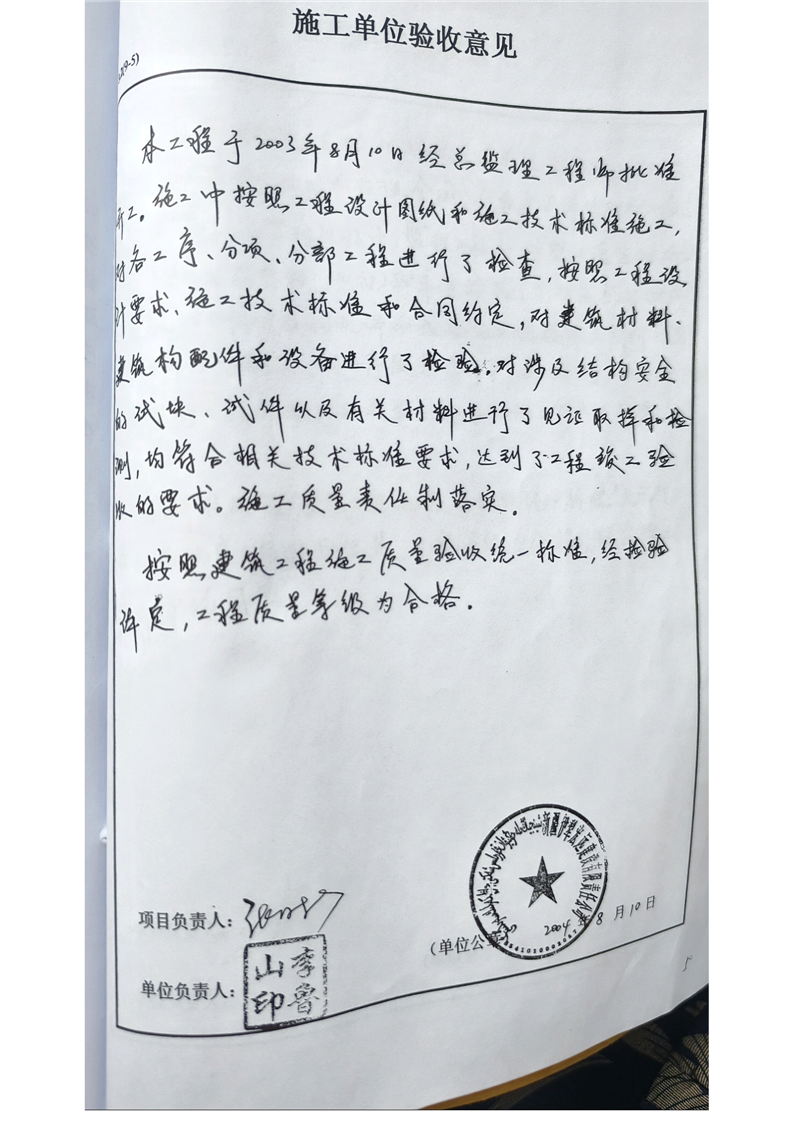 施工单位验收意见
2(9-5)
本工程于2003年8月10日经总监理工程师批准
开工。施工中按照工程设计图纸和施工技术标准施工，
对各工序、分项、分部工程进行了检查，按照工程设
计要求、施工技术标准和合同约定，对建筑材料、
建筑构配件和设备进行了检验。对涉及结构安全
的试块、试件以及有关材料进行了见证取样和检
测，均符合相关技术标准要求，达到了工程竣工验
收的要求。施工质量责任制落实。
按照建筑工程施工质量验收统一标准，经检验
评定，工程质量等级为合格。
新疆伊犁宏远建设有限责任公司
项目负责人：
（单位公
2004年8月10日
单位负责人：
李鲁山印
5